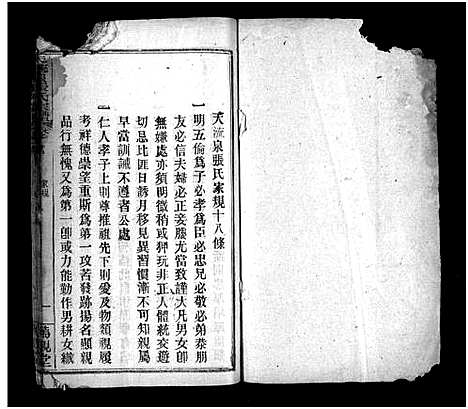 天流泉張氏家規十八條
一明五倫為子必孝為臣必忠兄必敬必弟恭朋
友必信夫婦必正妾媵尤當致謹大凡男女卽
無嫌處亦須明徵稍或狎玩非正人體統交遊
切忌比匪日誘月移見異習慣漸不可知親屬
早當訓誡不遵者公處
一仁人孝子上尊推祖先下則愛及物類視履
考祥德崇望重斯為第一攻苦發跡揚名顯親
品行無愧又為第一卽或力能勤作男耕女織
家規
一
萬規堂